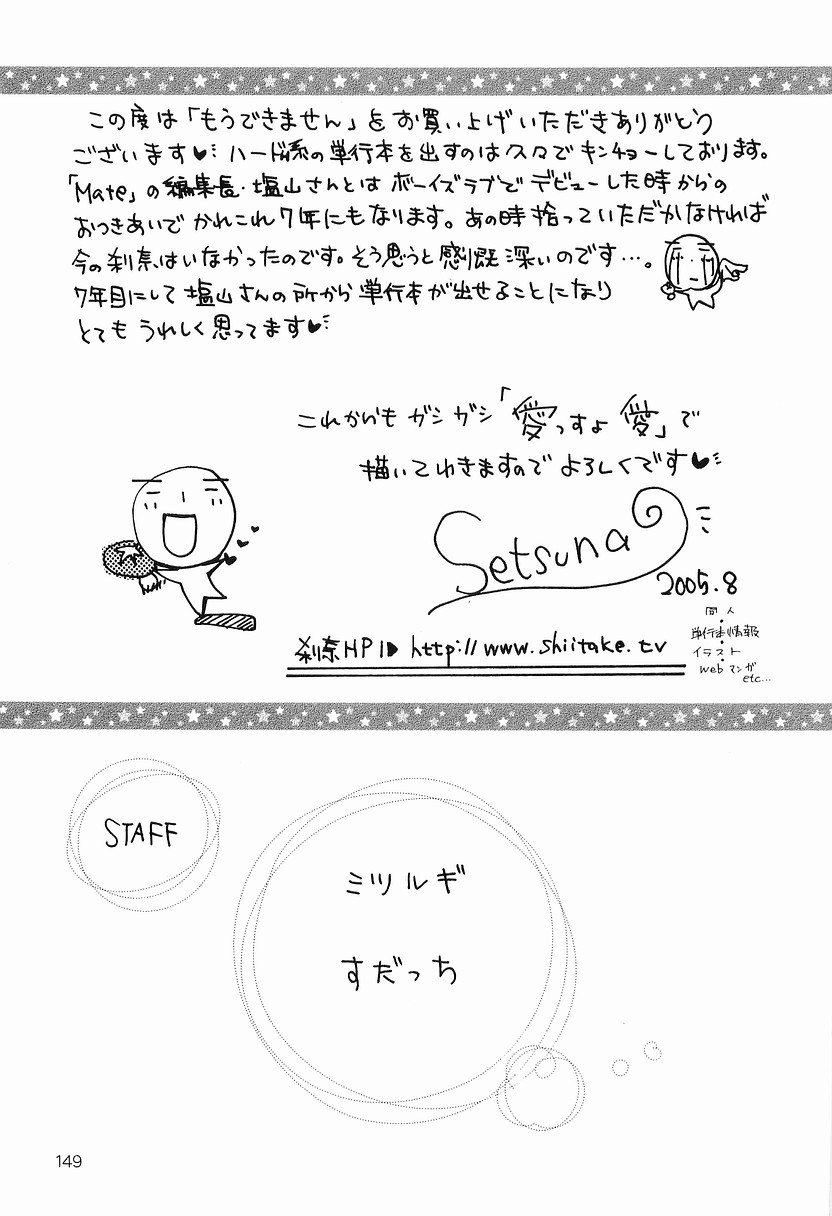 この度は「もうできません」をお買い上げいただきありがとう
ございます♥ ハード系の単行本を出すのは久々でキンチョーしております。
「Mate」の編集長・塩山さんとはボーイズラブでデビューした時からの
おつきあいでかれこれ7年にもなります。あの時拾っていただかなければ
今の刹奈はいなかったのです。そう思うと感慨深いのです…。
7年目にして塩山さんの所から単行本が出せることになり
とてもうれしく思ってます♥
これからもガシガシ「愛っすよ愛」で
描いてゆきますのでよろしくです♥
Setsuna
2005.8
刹奈HP! http://www.shiitake.tv
同人
単行本情報
イラスト
webマンガ
etc...
STAFF
ミツルギ
すだっち
149